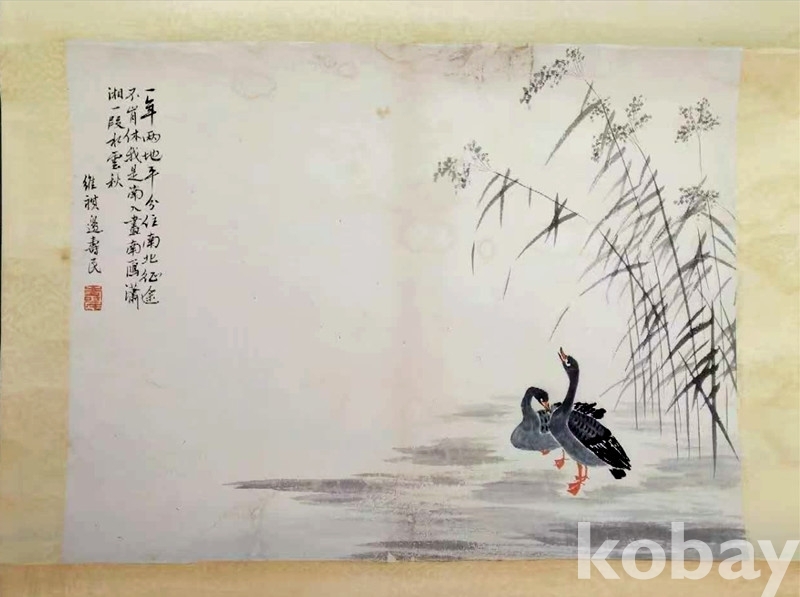 一年兩地平分住南北征途
不肯休我是南人畫南鴈瀟
湘一段水雲秋
維祺邊壽民
kobay